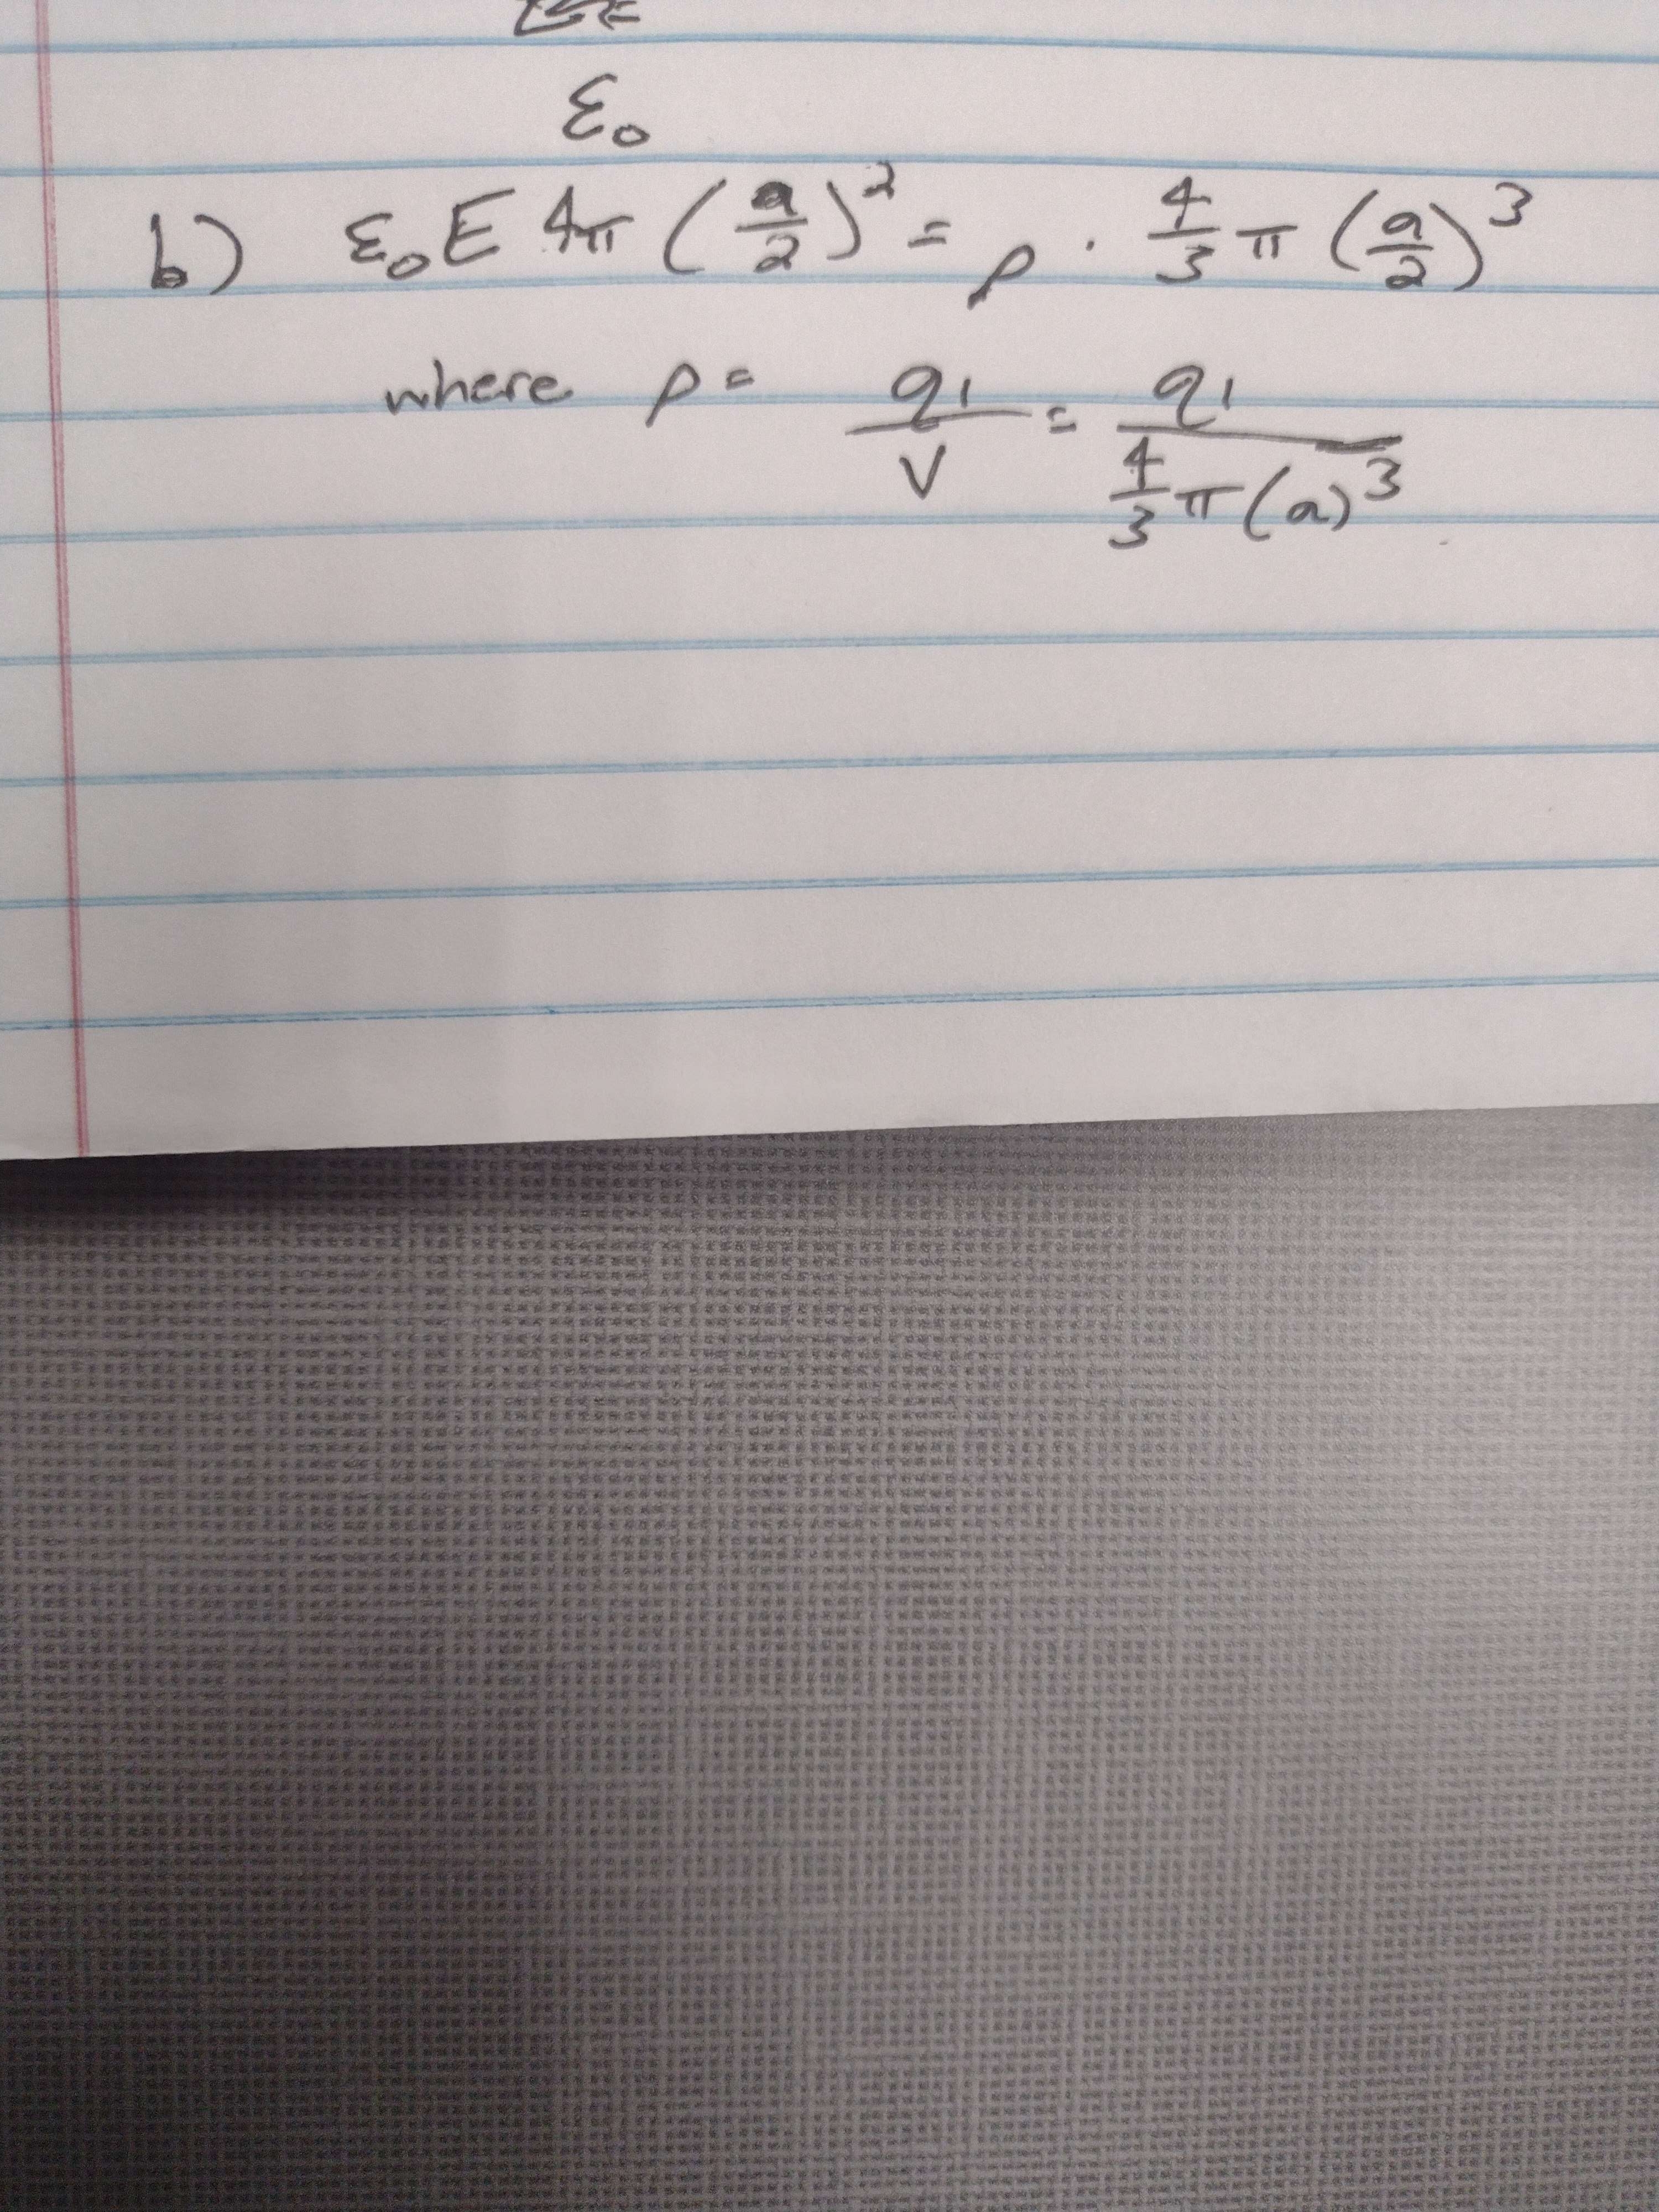 ε₀
b) ε₀E 4π (a/2)² = ρ · 4/3 π (a/2)³
where ρ = q₁/V = q₁/(4/3 π(a)³)